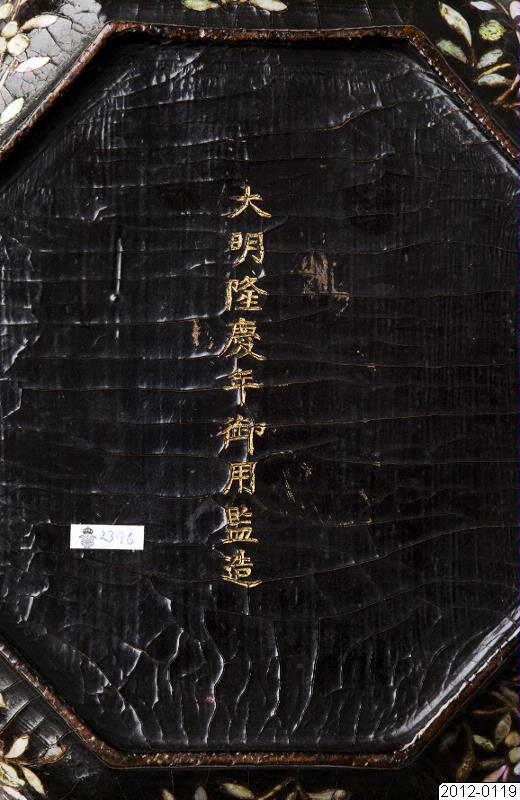 大明隆慶年御用監造
2396
2012-0119